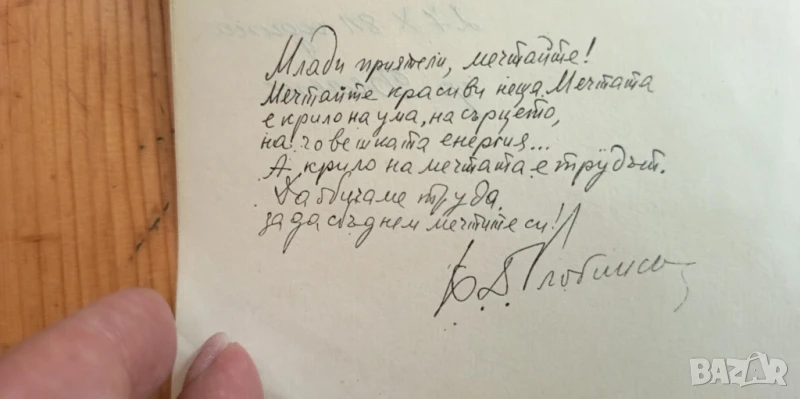 Млади приятели, мечтайте!
Мечтайте красиви неща. Мечтата
е крило на ума, на сърцето,
на човешката енергия...
А крило на мечтата е трудът.
Да обичаме труда
за да сбъднем мечтите си!
BAZAR